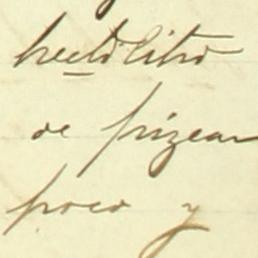 hectólitro
de frizcan
poco y